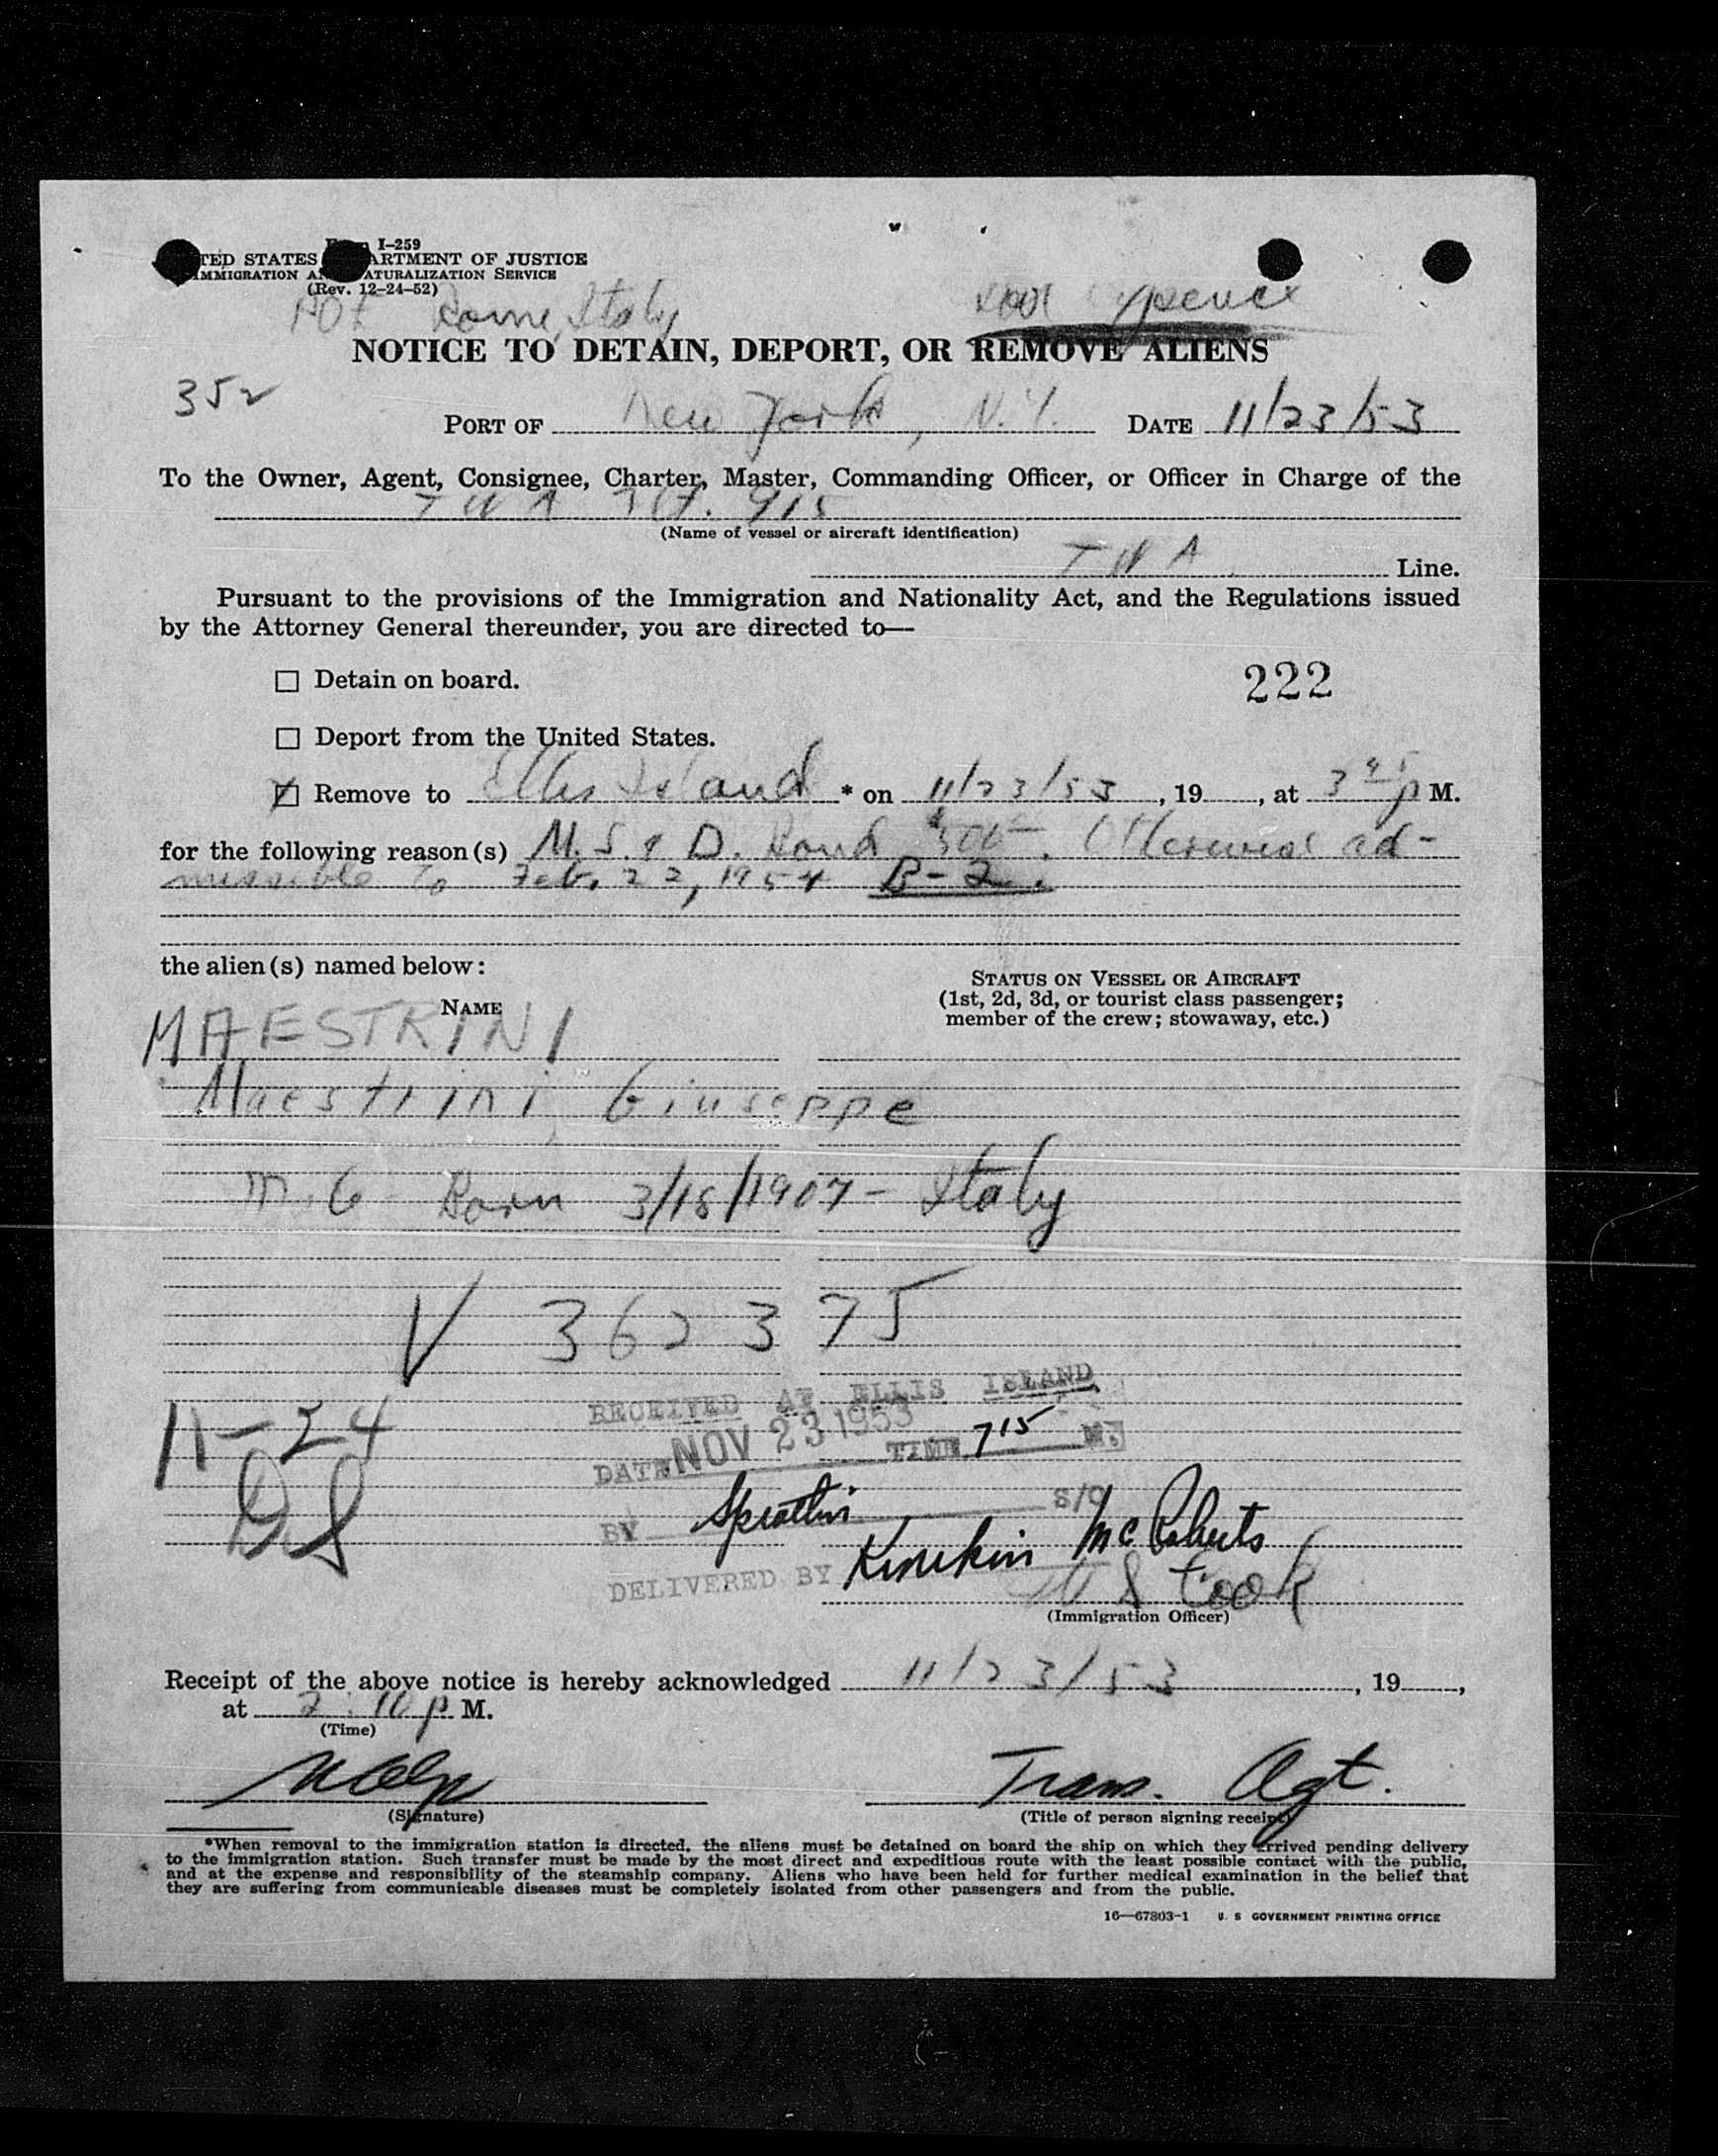 I-259
TED STATES ARTMENT OF JUSTICE
IMMIGRATION A ATURALIZATION SERVICE
(Rev. 12-24-52)
Rome, Italy
NOTICE TO DETAIN, DEPORT, OR REMOVE ALIENS
352
PORT OF New York, N.Y. DATE 11/23/53
To the Owner, Agent, Consignee, Charter, Master, Commanding Officer, or Officer in Charge of the
TWA Flt. 915
(Name of vessel or aircraft identification)
TWA Line.
Pursuant to the provisions of the Immigration and Nationality Act, and the Regulations issued
by the Attorney General thereunder, you are directed to—
☐ Detain on board.
222
☐ Deport from the United States.
☒ Remove to Ellis Island * on 11/23/53, 19, at 3 45 p M.
for the following reason(s) M.S. & D. Bond $500. Otherwise ad-
missible to Feb. 22, 1954 B-2.
the alien(s) named below:
STATUS ON VESSEL OR AIRCRAFT
(1st, 2d, 3d, or tourist class passenger;
member of the crew; stowaway, etc.)
NAME
MAESTRINI
Maestrini, Giuseppe
Born 3/18/1907 - Italy
V 362375
RECEIVED AT ELLIS ISLAND
DATE NOV 23 1953 TIME 715 M.
11-24
BY S/O
DELIVERED BY McRoberts
Cook
(Immigration Officer)
Receipt of the above notice is hereby acknowledged 11/23/53, 19,
at 2:10 p M.
(Time)
Trans. Agt.
(Signature)
(Title of person signing receipt)
*When removal to the immigration station is directed, the aliens must be detained on board the ship on which they arrived pending delivery
to the immigration station. Such transfer must be made by the most direct and expeditious route with the least possible contact with the public,
and at the expense and responsibility of the steamship company. Aliens who have been held for further medical examination in the belief that
they are suffering from communicable diseases must be completely isolated from other passengers and from the public.
16—67803-1 U. S. GOVERNMENT PRINTING OFFICE